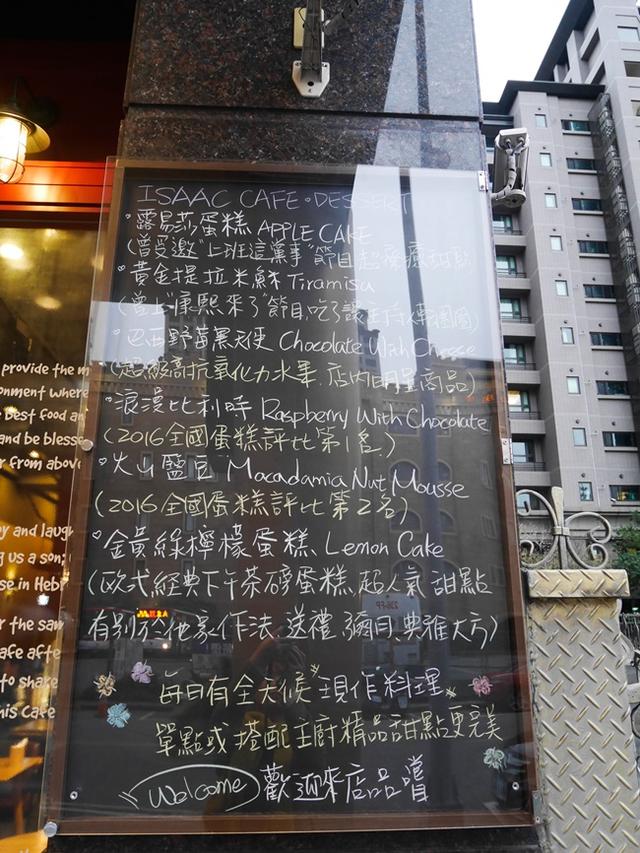 ISAAC CAFE·DESSERT
·露易莎蛋糕 APPLE CAKE
(曾受邀"上班這黨事"節目 超療癒甜點
·黃金提拉米穌 Tiramisu
(曾上"康熙來了"節目,吃了讓主持人
·巴西野莓黑天使 Chocolate With Cheese
(超級高抗氧化力水果.店內明星商品)
·浪漫比利時 Raspberry With Chocolate
(2016全國蛋糕評比第1名)
·火山鹽豆 Macadamia Nut Mousse
(2016全國蛋糕評比第2名)
·金黃綠檸檬蛋糕、Lemon Cake
(歐式經典下午茶磅蛋糕,超人氣甜點
有別於他家作法.送禮.彌月.典雅大方)
每日有全天候"現作料理"
單點或搭配主廚精品甜點更完美
Welcome 歡迎來店品嚐
provide the m
onment where
best food a
and be blesse
from above
y and laugh
g us a son;
se in Heb
the sam
afe afte
to share
his Cafe